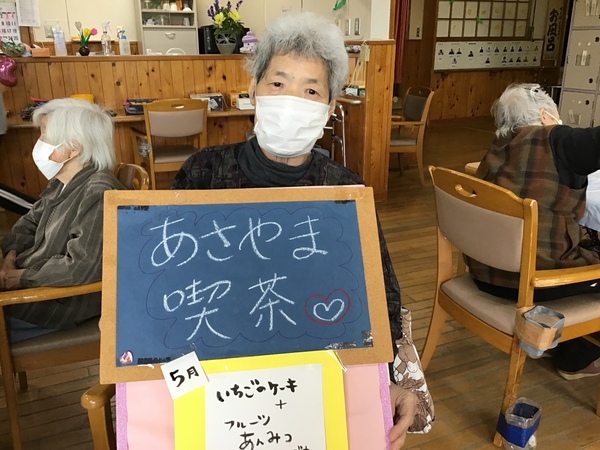 あさやま
喫茶
5月
いちごのケーキ
+
フルーツ
あんみつ